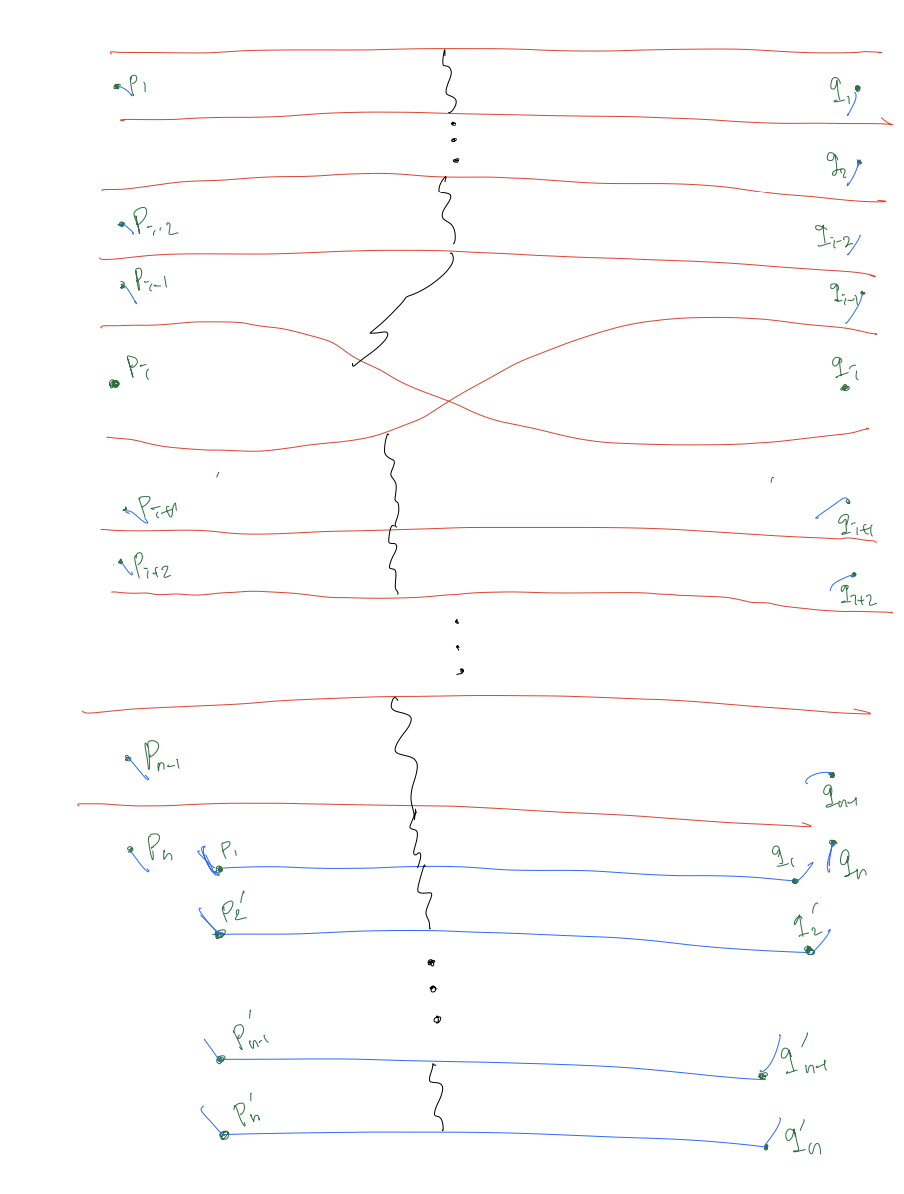 p₁ q₁
q₂
Pᵢ₋₂ qᵢ₋₂
Pᵢ₋₁ qᵢ₋₁
Pᵢ qᵢ
Pᵢ₊₁ qᵢ₊₁
Pᵢ₊₂ qᵢ₊₂
Pₙ₋₁ qₙ₋₁
Pₙ P₁ q₁ qₙ
P₂′ q₂′
P′ₙ₋₁ q′ₙ₋₁
P′ₙ q′ₙ